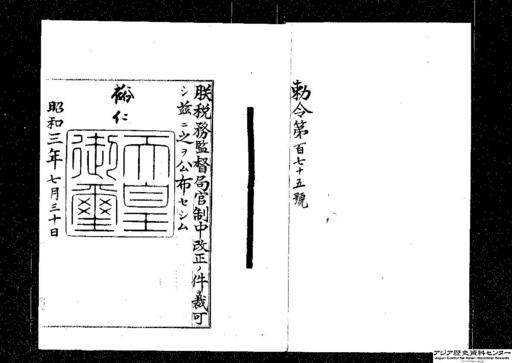 勅令第百七十五號
朕税務監督局官制中改正ノ件裁可
シ茲ニ之ヲ公布セシム
裕仁
天皇
御璽
昭和三年七月三十日
アジア歴史資料センター
Japan Center for Asian Historical Records